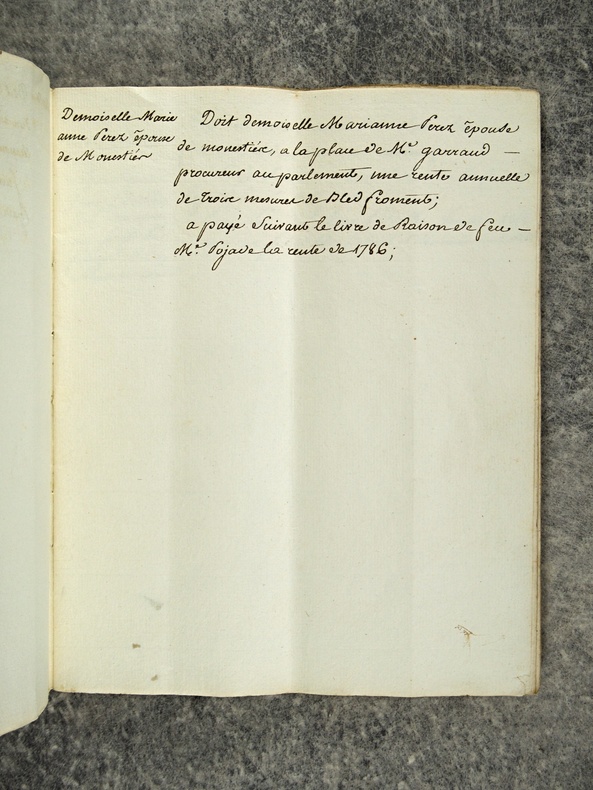 Demoiselle Marie
anne Perez épouse
de Monestiér
Doit demoiselle Marianne Perez épouse
de monestiér, a la place de Me. garraud —
procureur au parlement, une rente annuelle
de trois mesures de Bled froment;
a payé Suivant le livre de Raison de feu —
Me. Pojade la rente de 1786;